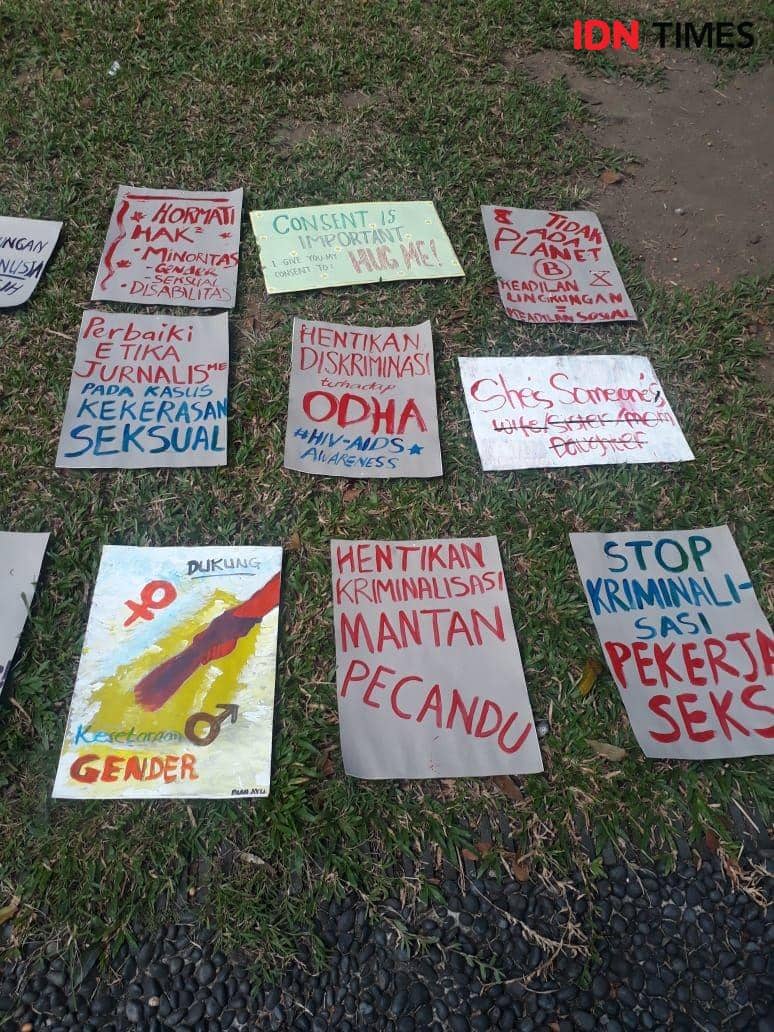 IDN TIMES
NUSIA
HORMATI
HAK²
• MINORITAS
- GENDER
SEKSUAL
- DISABILITAS
CONSENT IS
IMPORTANT
I GIVE YOU MY
CONSENT TO:
HUG ME!
TIDAK
ADA
PLANET
B
KEADILAN
LINGKUNGAN
=
KEADILAN SOSIAL
Perbaiki
ETIKA
JURNALISME
PADA KASUS
KEKERASAN
SEKSUAL
HENTIKAN
DISKRIMINASI
terhadap
ODHA
#HIV-AIDS
AWARENESS
She's Someone's
wife/sister/mom
Daughter
DUKUNG
Kesetaraan
GENDER
HENTIKAN
KRIMINALISASI
MANTAN
PECANDU
STOP
KRIMINALI-
SASI
PEKERJA
SEKS